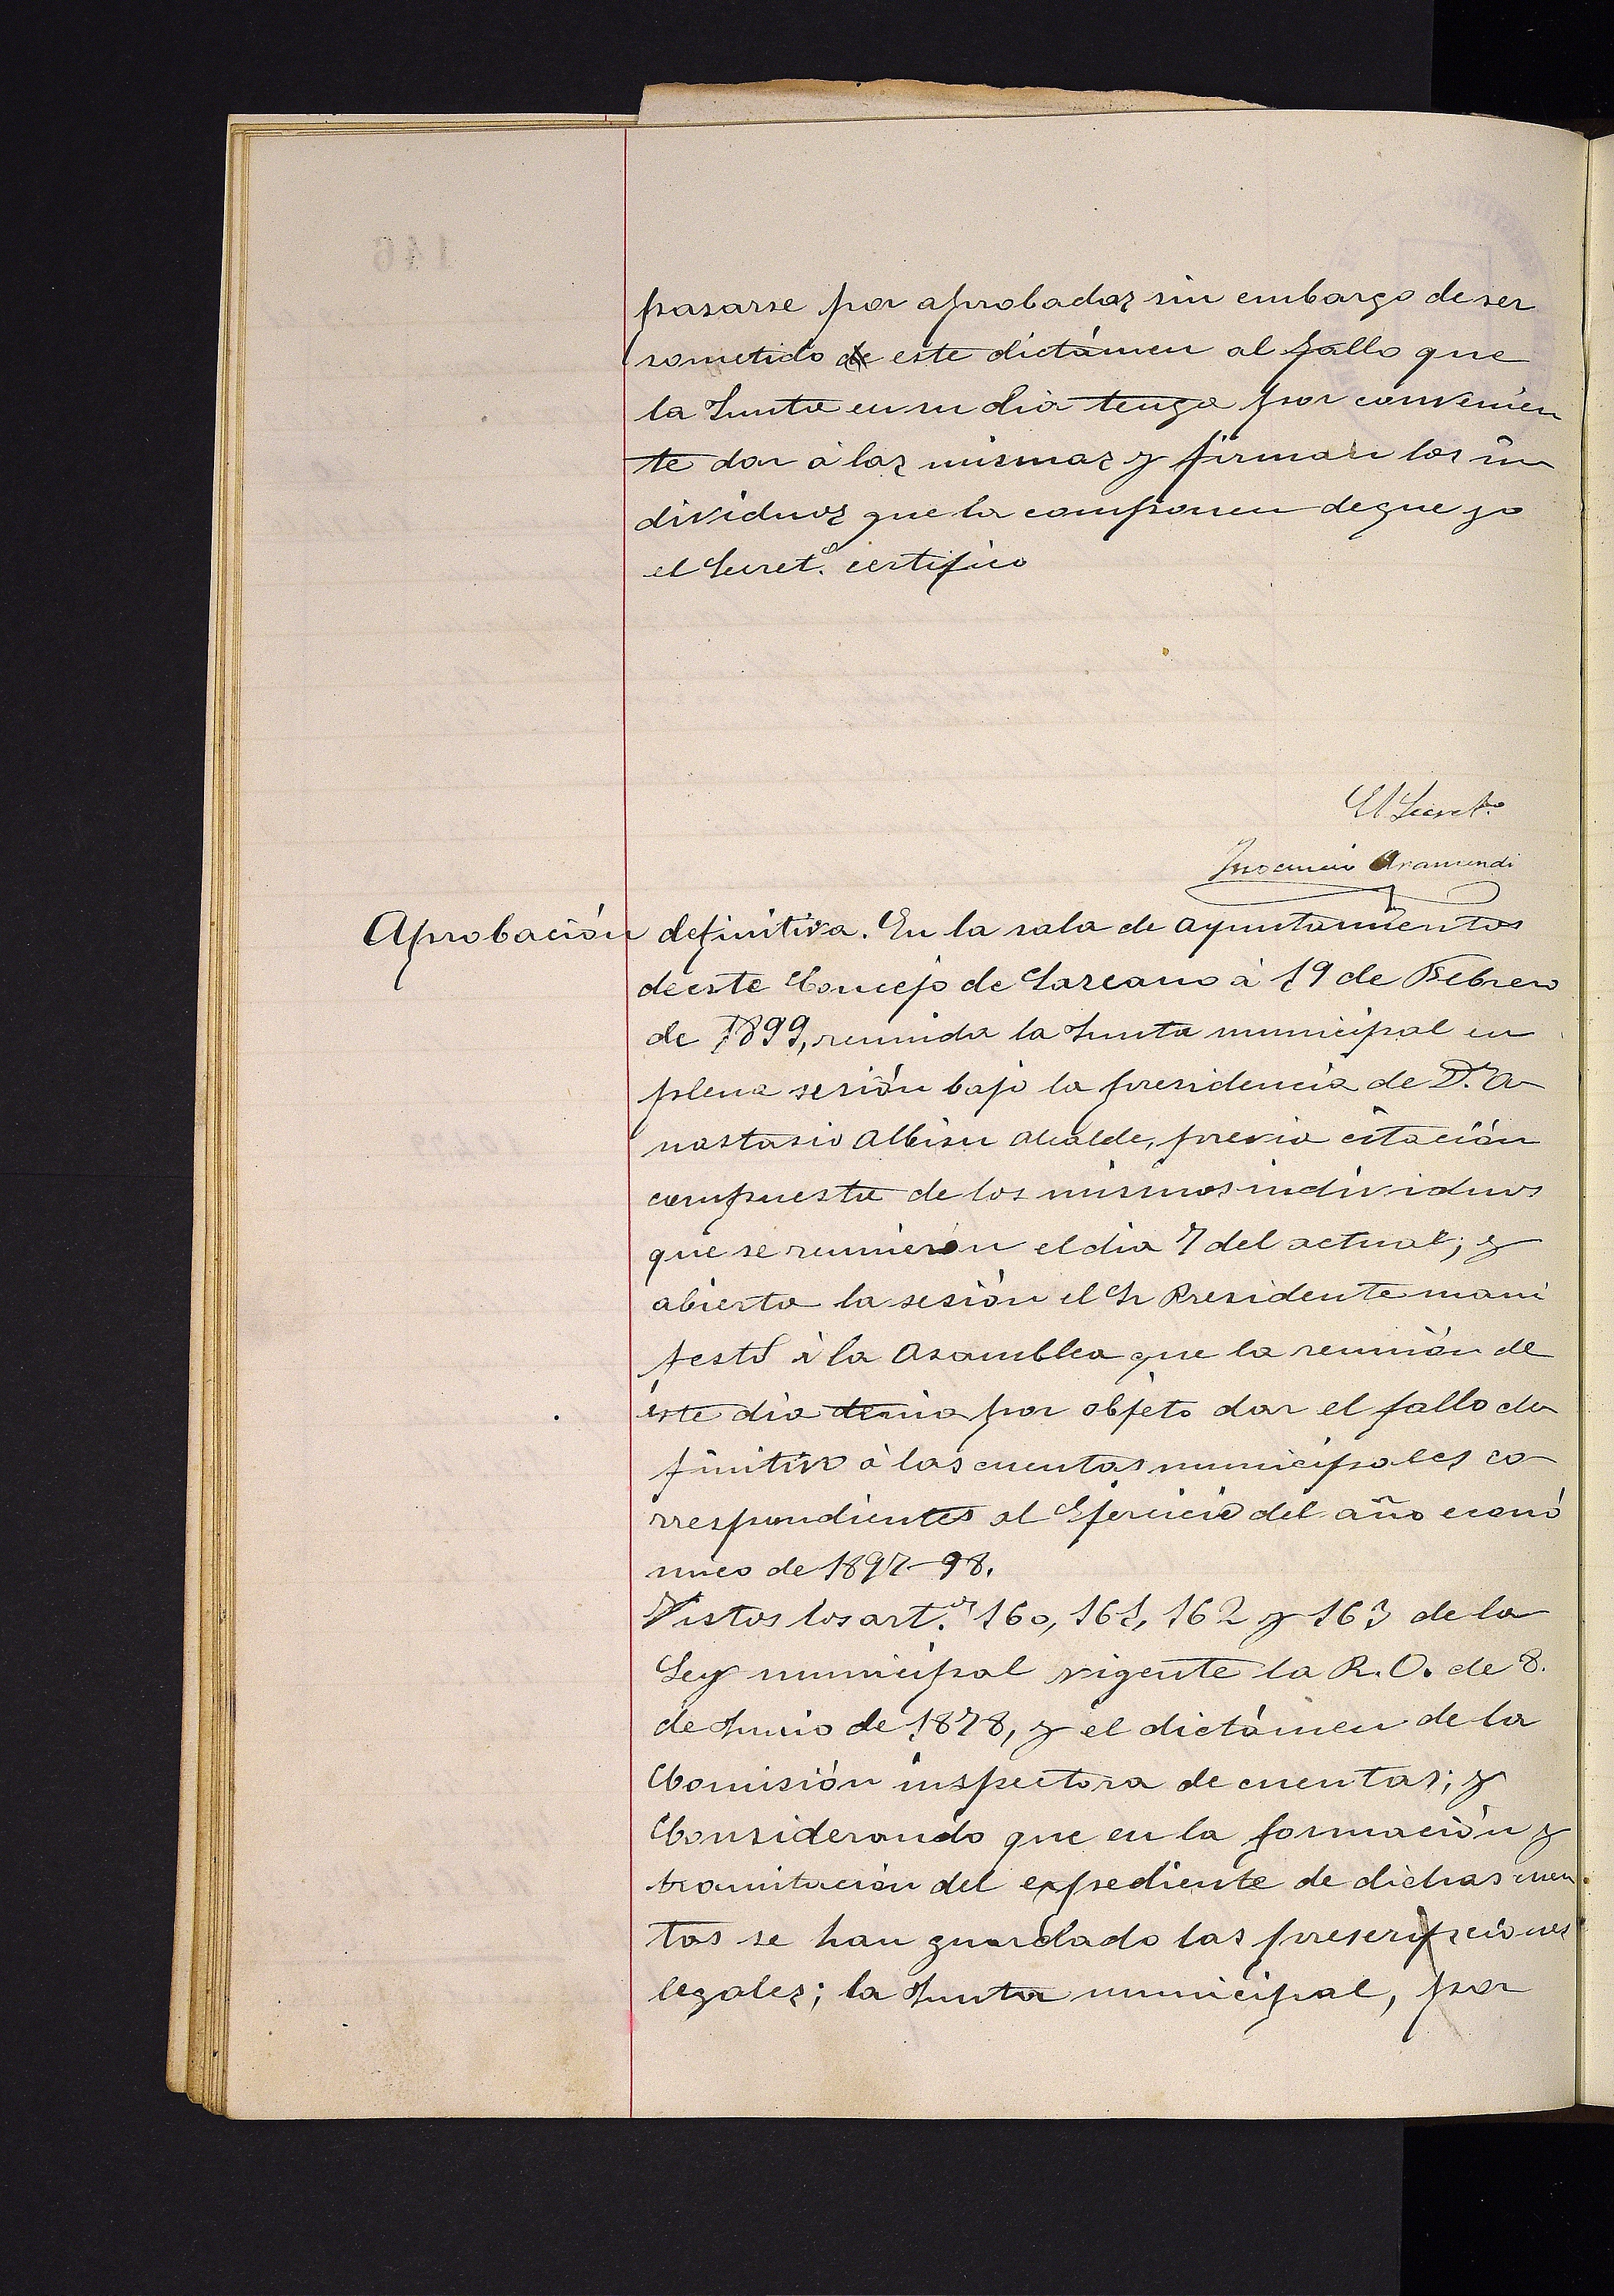 pasarse por aprobadas sin embargo de ser
sometido este dictámen al fallo que
la Junta en su dia tenga por convenien
te dar á las mismas y firman los in
dividuos que la componen de que yo
el Secret.º certifico
El Secret.º
Inocencio Aramendi
Aprobación definitiva. En la sala de ayuntamientos
de este Concejo de Lazcano á 19 de Febrero
de 1899, reunida la Junta municipal en
plena sesión bajo la presidencia de D.n A
nastasio Albisu Alcalde, previa citación
compuesta de los mismos individuos
que se reunieron el dia 7 del actual; y
abierta la sesión el Sr Presidente mani
festó á la Asamblea que la reunión de
éste dia tenia por objeto dar el fallo de
finitivo á las cuentas municipales co
rrespondientes al Ejercicio del año econó
mico de 1897-98.
Vistos los art.os 160, 161, 162 y 163 de la
Ley municipal vigente la R. O. de 8.
de Junio de 1878, y el dictámen de la
Comisión inspectora de cuentas; y
Considerando que en la formación y
tramitación del expediente de dichas cuen
tas se han guardado las prescripciones
legales; la Junta municipal, por